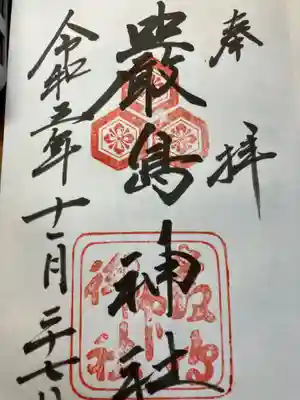 奉拝
嚴島神社
令和三年十一月二十七日